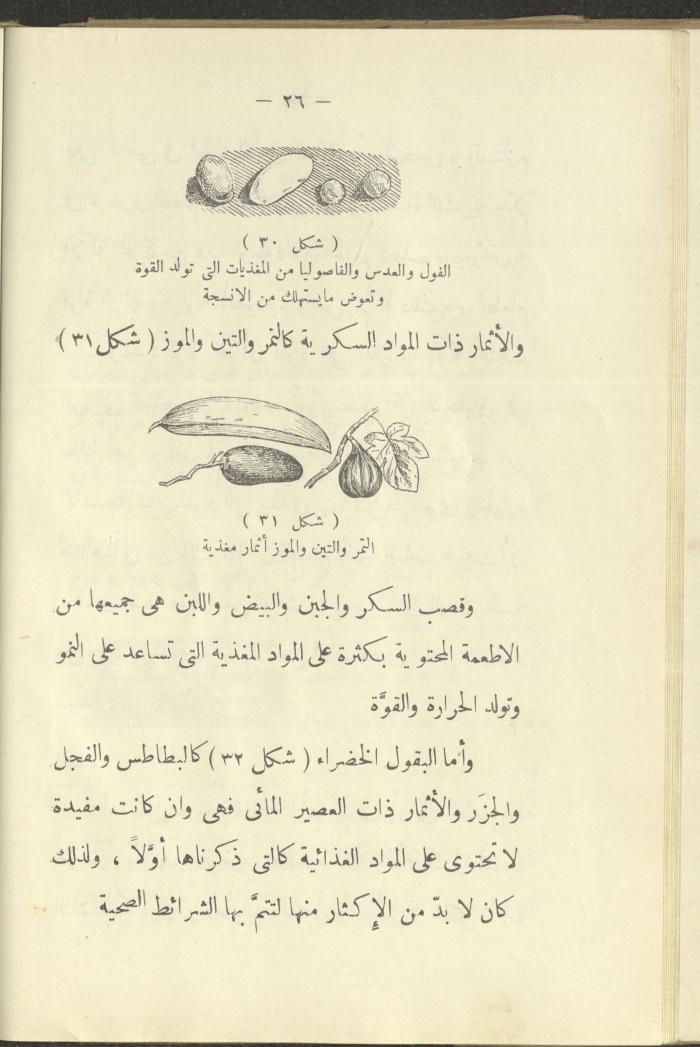 — ٢٦ —
( شكل ٣٠ )
الفول والعدس والفاصوليا من المغذيات التى تولد القوة
وتعوض مايستهلك من الانسجة
والأثمار ذات المواد السكرية كالتمر والتين والموز ( شكل ٣١ )
( شكل ٣١ )
التمر والتين والموز أثمار مغذية
وقصب السكر والجبن والبيض واللبن هى جميعها من
الاطعمة المحتوية بكثرة على المواد المغذية التى تساعد على النمو
وتولد الحرارة والقوَّة
وأما البقول الخضراء ( شكل ٣٢ ) كالبطاطس والفجل
والجزَر والأثمار ذات العصير المائى فهى وان كانت مفيدة
لا تحتوى على المواد الغذائية كالتى ذكرناها أوَّلاً ، ولذلك
كان لا بدّ من الإكثار منها لتتمَّ بها الشرائط الصحية